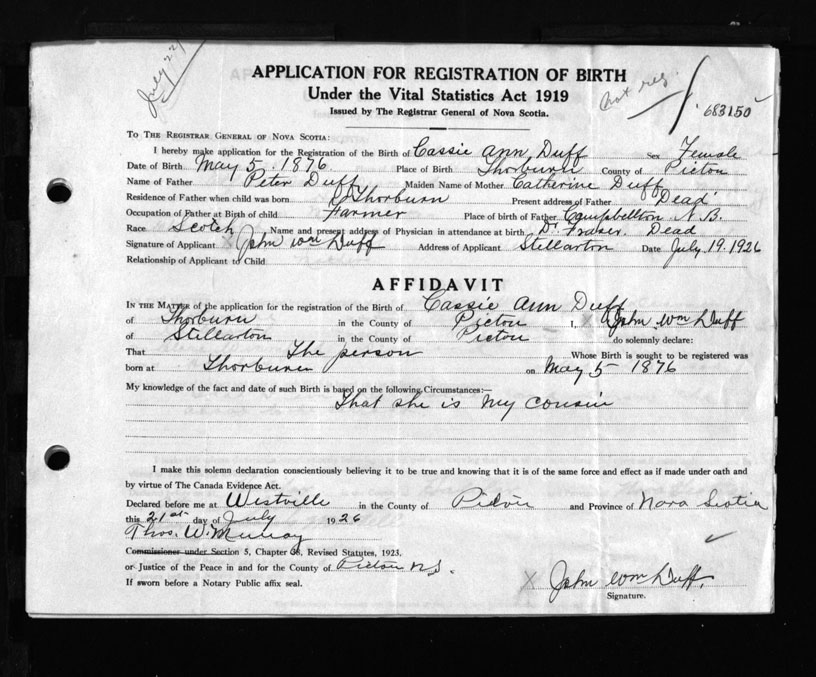 July 22
APPLICATION FOR REGISTRATION OF BIRTH
Under the Vital Statistics Act 1919
Issued by The Registrar General of Nova Scotia.
not reg.
683150
TO THE REGISTRAR GENERAL OF NOVA SCOTIA:
I hereby make application for the Registration of the Birth of Cassie Ann Duff Sex Female
Date of Birth May 5. 1876. Place of Birth Thorburn County of Picton
Name of Father Peter Duff Maiden Name of Mother Catherine Duff
Residence of Father when child was born Thorburn Present address of Father Dead
Occupation of Father at Birth of child Farmer Place of birth of Father Campbellton N.B.
Race Scotch Name and present address of Physician in attendance at birth Dr Fraser. Dead
Signature of Applicant X John Wm Duff Address of Applicant Stellarton Date July 19. 1926
Relationship of Applicant to Child
AFFIDAVIT
IN THE MATTER of the application for the registration of the Birth of Cassie Ann Duff
of Thorburn in the County of Picton I, X John Wm Duff
of Stellarton in the County of Picton do solemnly declare:
That The person Whose Birth is sought to be registered was
born at Thorburn on May 5 1876
My knowledge of the fact and date of such Birth is based on the following Circumstances:—
That she is my cousin
I make this solemn declaration conscientiously believing it to be true and knowing that it is of the same force and effect as if made under oath and
by virtue of The Canada Evidence Act.
Declared before me at Westville in the County of Picton and Province of Nova Scotia
this 21st day of July 1926
Thos. W. Murray
Commissioner under Section 5, Chapter 38, Revised Statutes, 1923.
or Justice of the Peace in and for the County of Picton N.S.
If sworn before a Notary Public affix seal.
X John Wm Duff.
Signature.